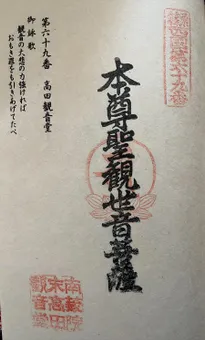 国第六十九番
本尊聖観世音菩薩
第六十九番　高田観音堂
御詠歌
観音の大悲の力強ければ
おもき罪をも引きあげてたべ
南蔵院
末高田
観音堂